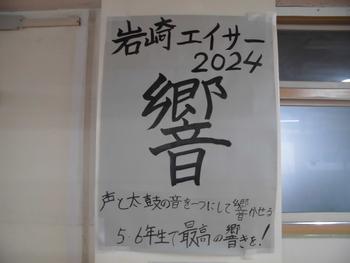 岩崎エイサー
2024
響
声と太鼓の音を一つにして響かせろ
5・6年生で最高の響きを!